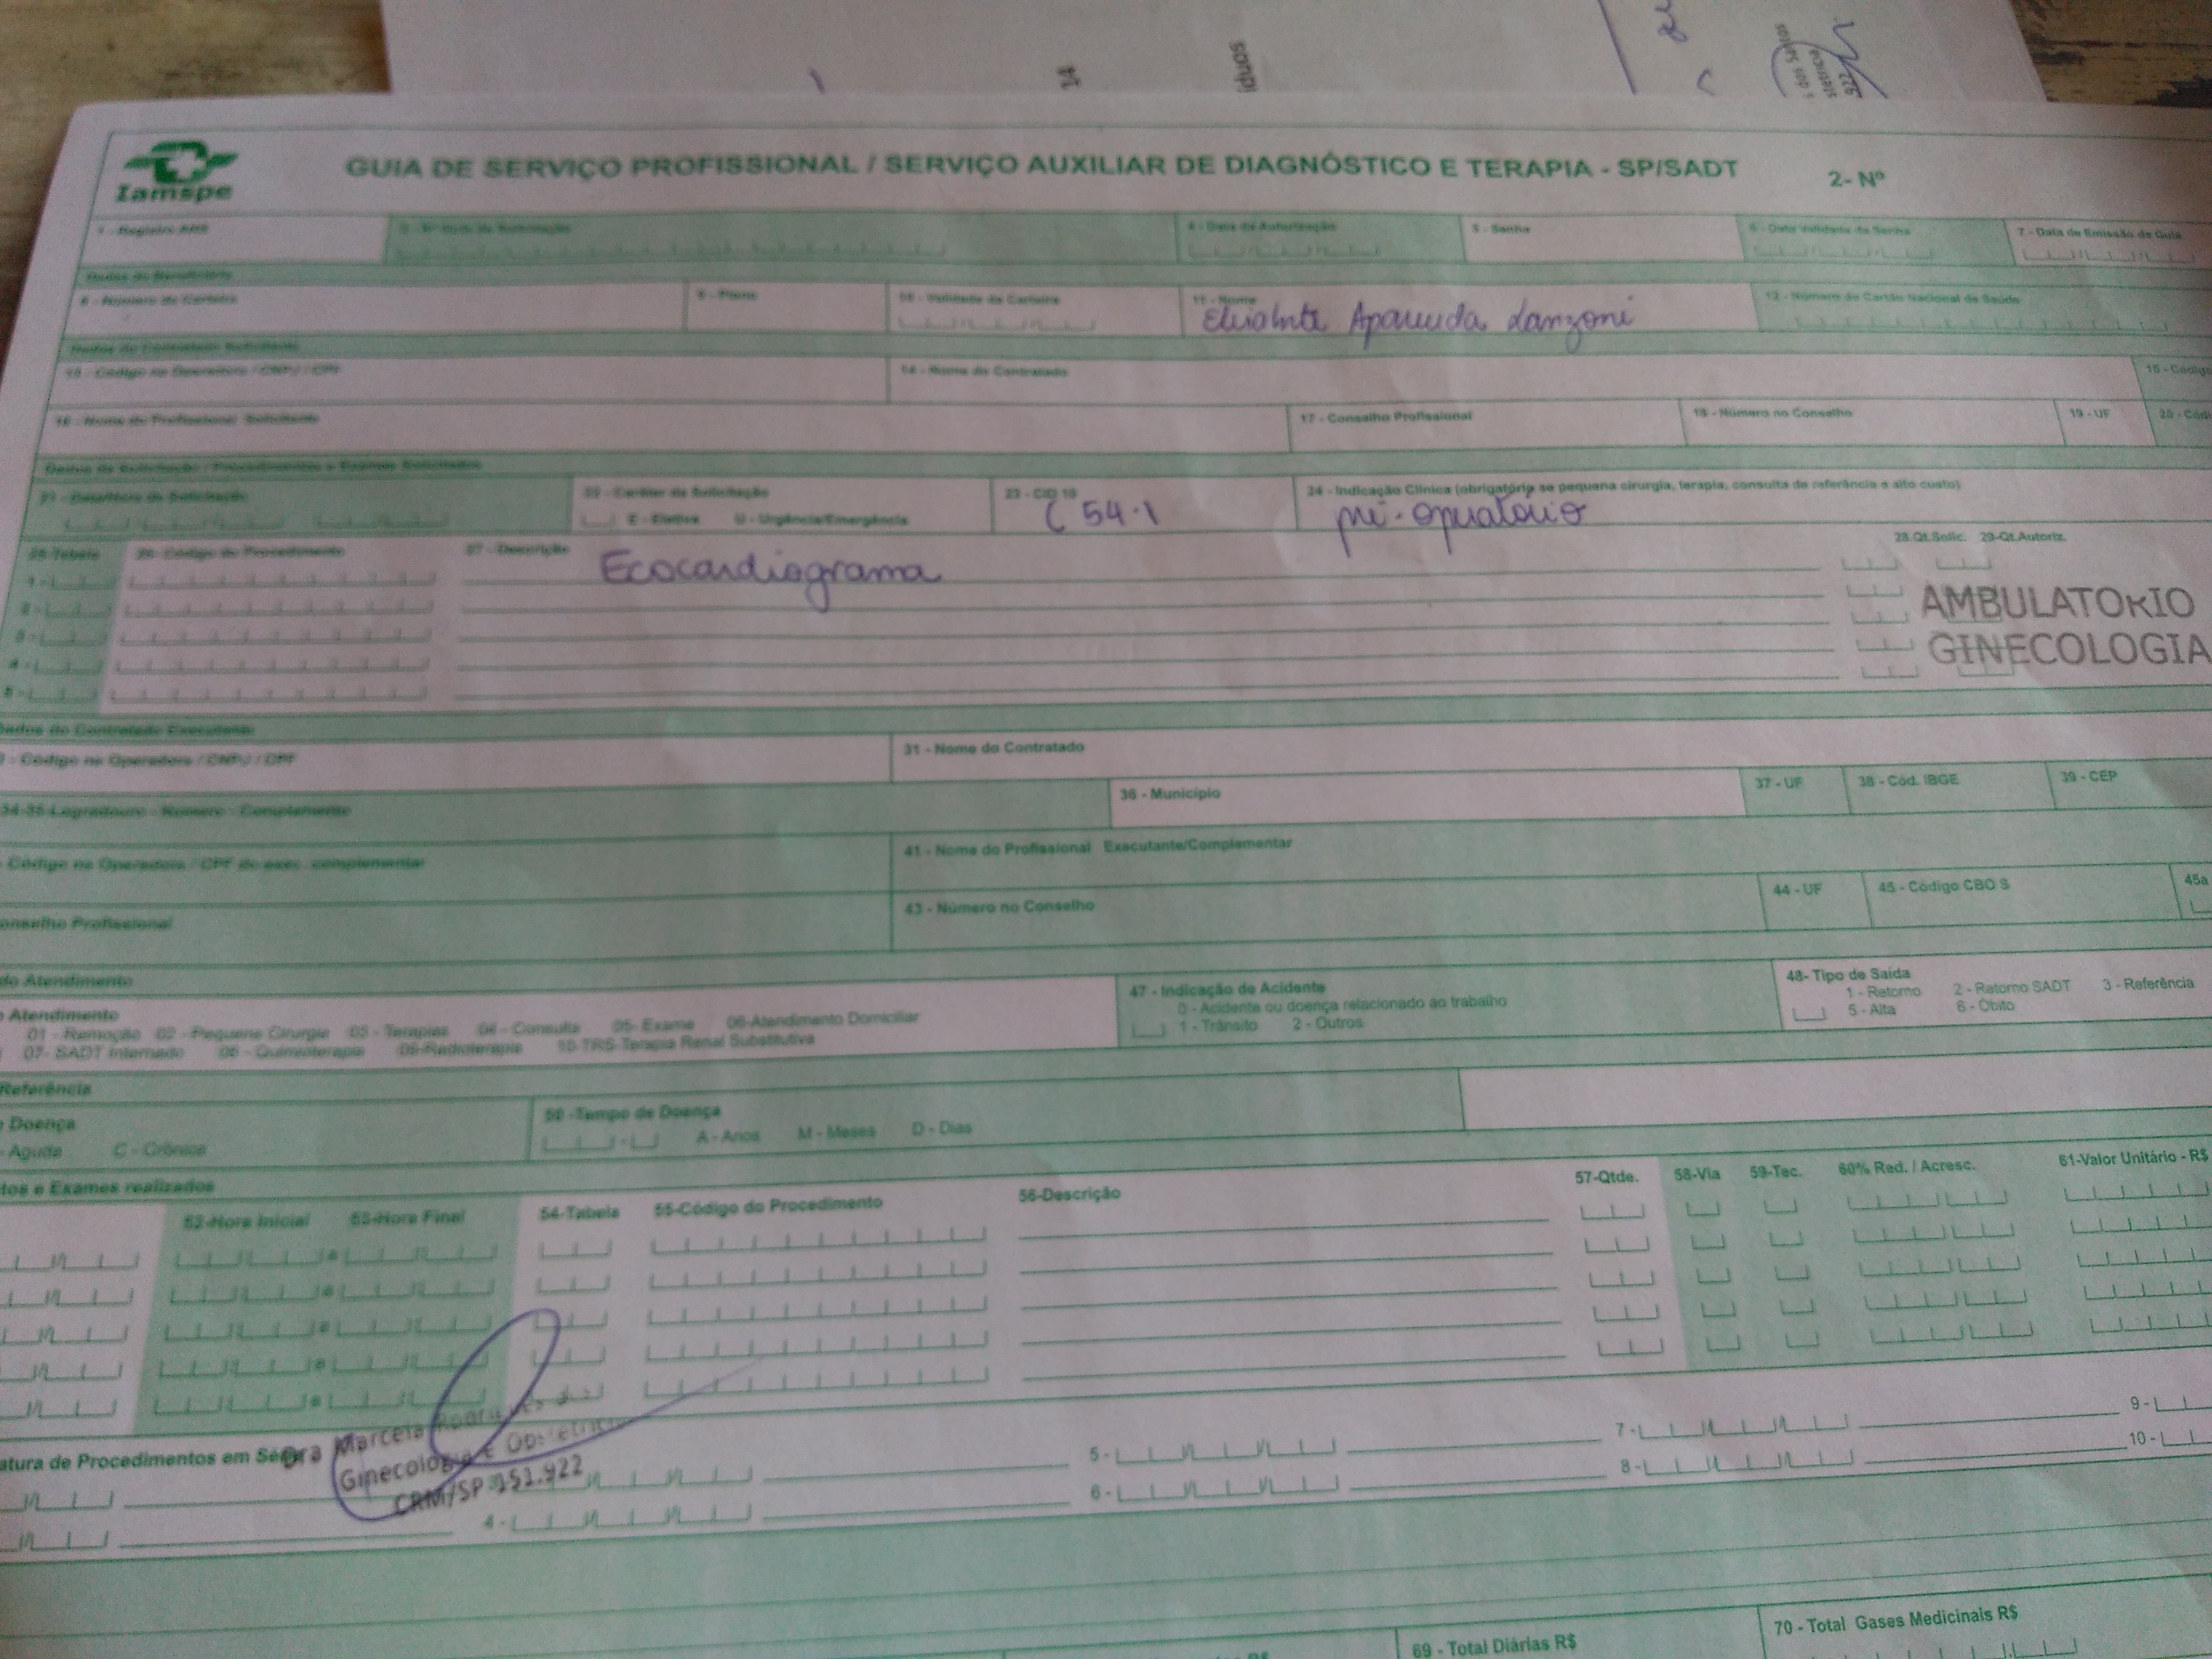 14
íduos
dos Santos
stetrícia
922
Iamspe
GUIA DE SERVIÇO PROFISSIONAL / SERVIÇO AUXILIAR DE DIAGNÓSTICO E TERAPIA - SP/SADT
2- Nº
1 - Registro ANS
4 - Data da Autorização
5 - Senha
6 - Data Validade da Senha
7 - Data de Emissão da Guia
Dados do Beneficiário
8 - Número da Carteira
9 - Plano
10 - Validade da Carteira
11 - Nome
Aparecida Lanzoni
12 - Número do Cartão Nacional de Saúde
Dados do Contratado Solicitante
13 - Código na Operadora / CNPJ / CPF
14 - Nome do Contratado
15 - Código
16 - Nome do Profissional Solicitante
17 - Conselho Profissional
18 - Número no Conselho
19 - UF
20 - Cód
Dados da Solicitação / Procedimentos e Exames Solicitados
21 - Data/Hora da Solicitação
22 - Caráter da Solicitação
E - Eletiva U - Urgência/Emergência
23 - CID 10
C 54.1
24 - Indicação Clínica (obrigatório se pequena cirurgia, terapia, consulta de referência e alto custo)
pré-operatório
25-Tabela
26 - Código do Procedimento
27 - Descrição
28.Qt.Solic. 29-Qt.Autoriz.
Ecocardiograma
1 -
2 -
3 -
4 -
5 -
AMBULATORIO
GINECOLOGIA
Dados do Contratado Executante
- Código na Operadora / CNPJ / CPF
31 - Nome do Contratado
34-35-Logradouro - Número - Complemento
36 - Município
37 - UF
38 - Cód. IBGE
39 - CEP
Código na Operadora / CPF do exec. complementar
41 - Nome do Profissional Executante/Complementar
onselho Profissional
43 - Número no Conselho
44 - UF
45 - Código CBO S
45a
do Atendimento
Atendimento
01 - Remoção 02 - Pequena Cirurgia 03 - Terapias 04 - Consulta 05- Exame 06-Atendimento Domiciliar
07- SADT Internado 08 - Quimioterapia 09-Radioterapia 10-TRS-Terapia Renal Substitutiva
47 - Indicação de Acidente
0 - Acidente ou doença relacionado ao trabalho
1 - Trânsito 2 - Outros
48- Tipo de Saída
1 - Retorno 2 - Retorno SADT 3 - Referência
5 - Alta 6 - Óbito
Referência
Doença
- Aguda C - Crônica
50 -Tempo de Doença
A - Anos M - Meses D - Dias
tos e Exames realizados
52-Hora Inicial
53-Hora Final
54-Tabela
55-Código do Procedimento
56-Descrição
57-Qtde.
58-Via
59-Tec.
60% Red. / Acresc.
61-Valor Unitário - R$
atura de Procedimentos em Sé
Dra Marcela
Ginecologia e Obstetrícia
CRM/SP 151.922
4 -
5 -
6 -
7 -
8 -
9 -
10 -
69 - Total Diárias R$
70 - Total Gases Medicinais R$